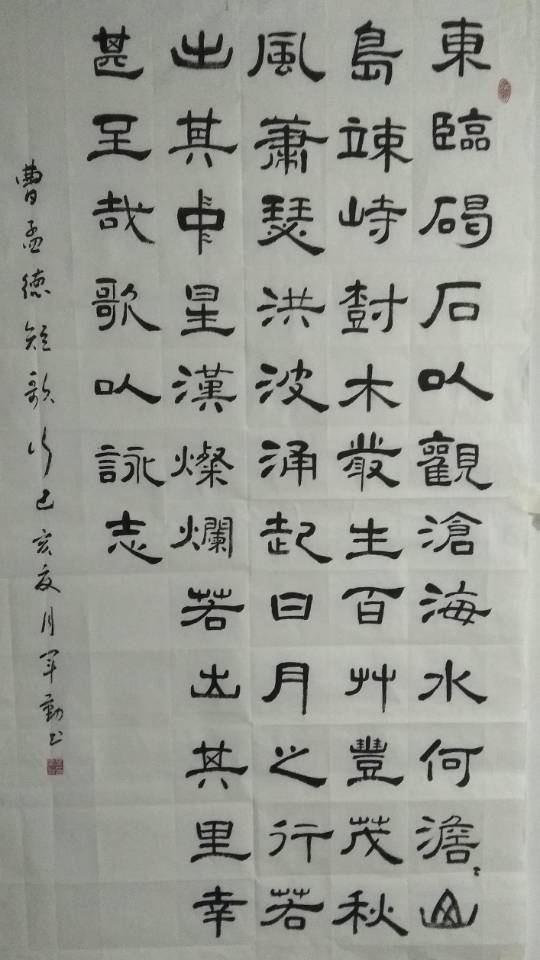 東臨碣石以觀滄海水何澹〻山
島竦峙樹木叢生百艸豐茂秋
風蕭瑟洪波涌起日月之行若
出其中星漢燦爛若出其里幸
甚至哉歌以詠志
曹孟德短歌行己亥夏月军勤书